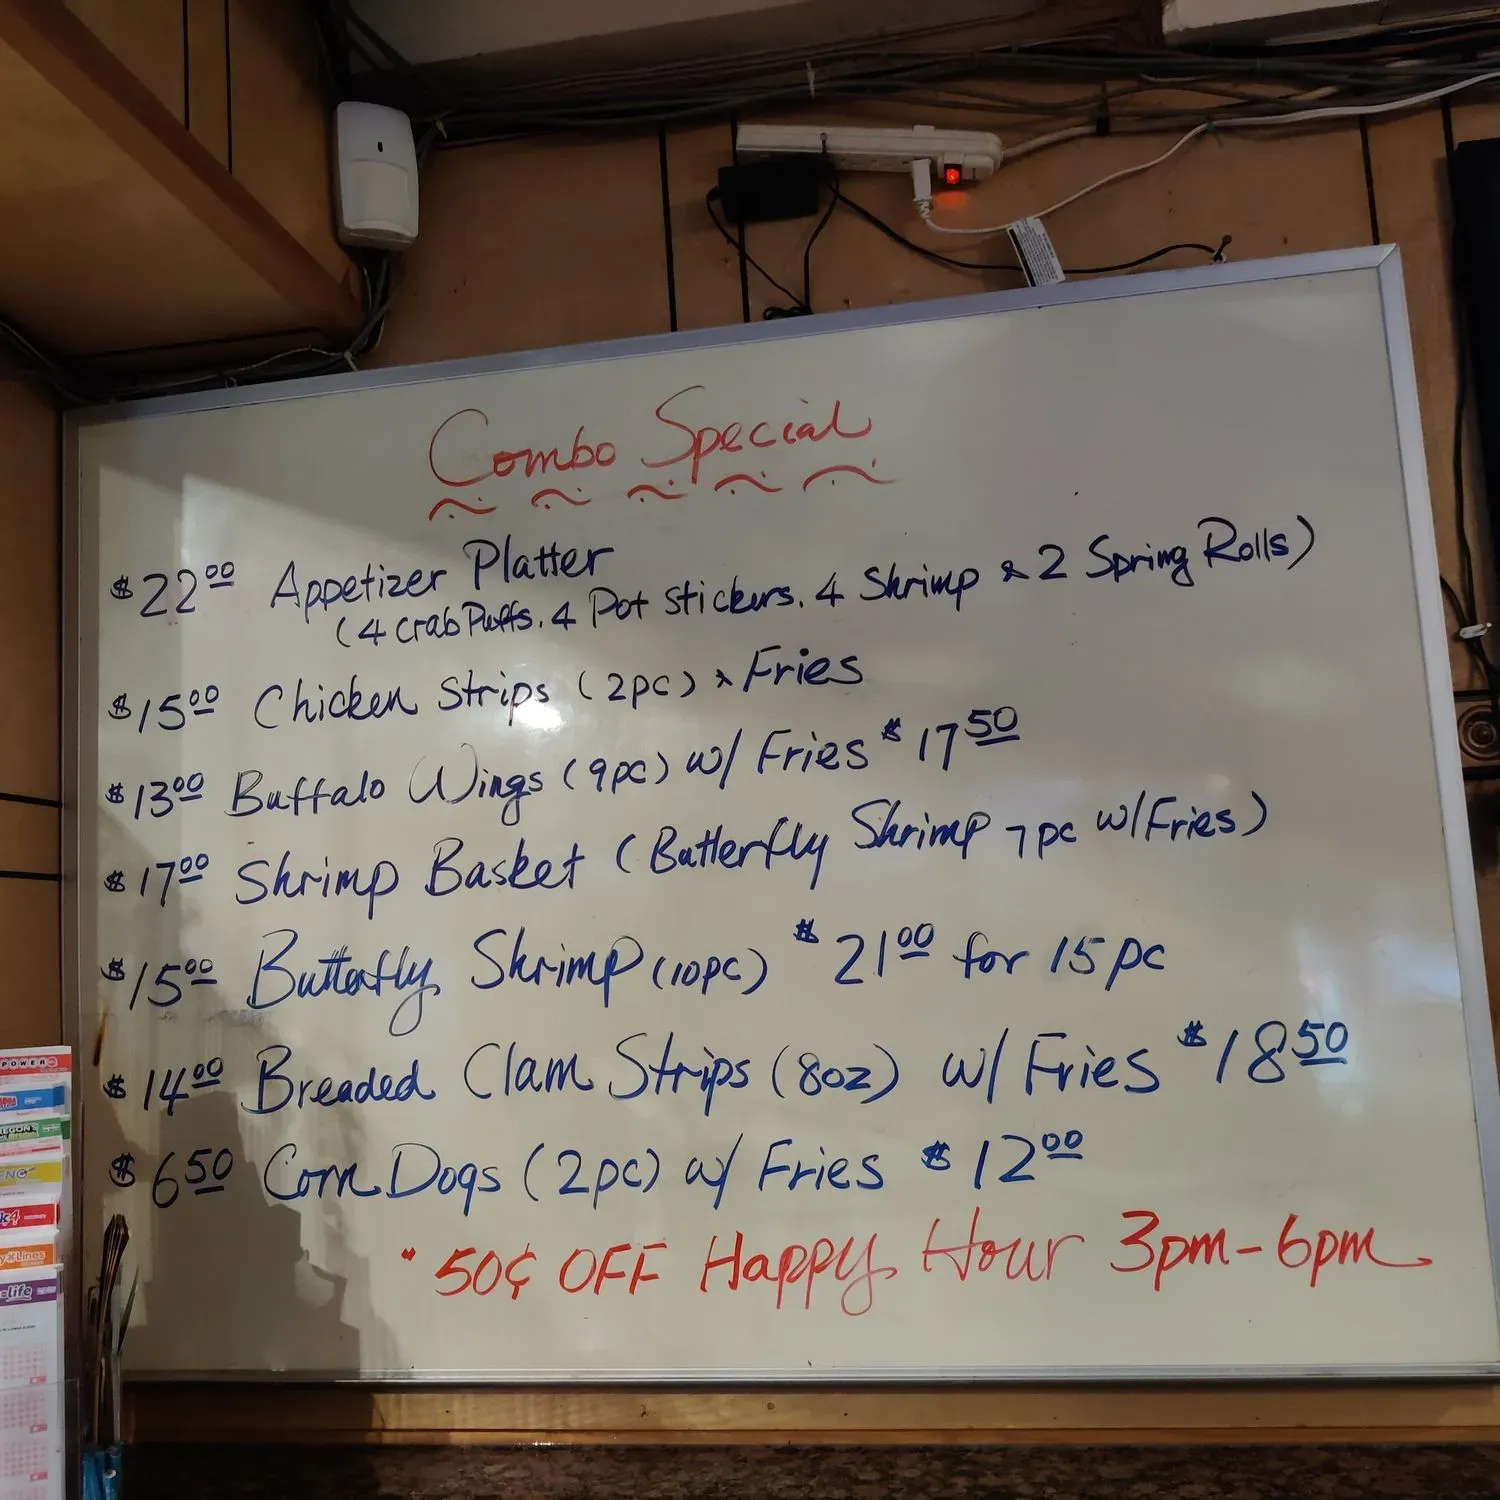 Combo Special
$22.00 Appetizer Platter
(4 Crab Puffs. 4 Pot Stickers. 4 Shrimp & 2 Spring Rolls)
$15.00 Chicken Strips (2pc) & Fries
$13.00 Buffalo Wings (9pc) w/ Fries $17.50
$17.00 Shrimp Basket (Butterfly Shrimp 7pc w/Fries)
$15.00 Butterfly Shrimp (10pc) $21.00 for 15pc
$14.00 Breaded Clam Strips (8oz) w/ Fries $18.50
$6.50 Corn Dogs (2pc) w/ Fries $12.00
" 50¢ OFF Happy Hour 3pm-6pm
POWER